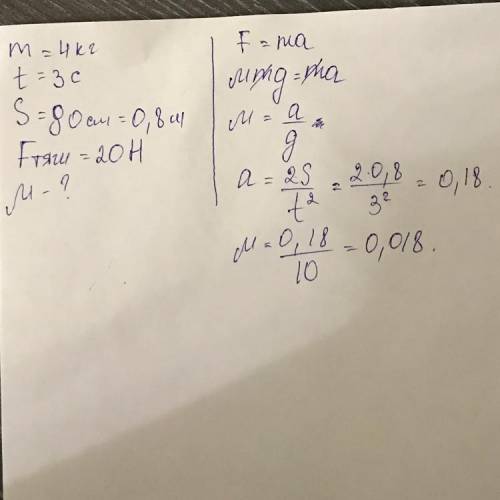 m = 4 кг
t = 3 с
S = 80 см = 0,8 м
Fтяги = 20 Н
μ - ?
F = ma
μmg = ma
μ = a/g
a = 2S/t² = 2·0,8/3² = 0,18.
μ = 0,18/10 = 0,018.